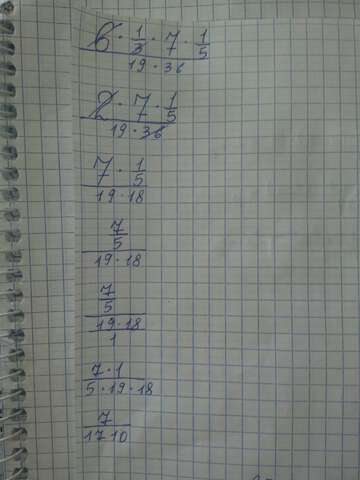 6 · 1/3 · 7 · 1/5
19 · 36
2 · 7 · 1/5
19 · 36
7 · 1/5
19 · 18
7/5
19 · 18
7/5
19 · 18
1
7 · 1
5 · 19 · 18
7
1710